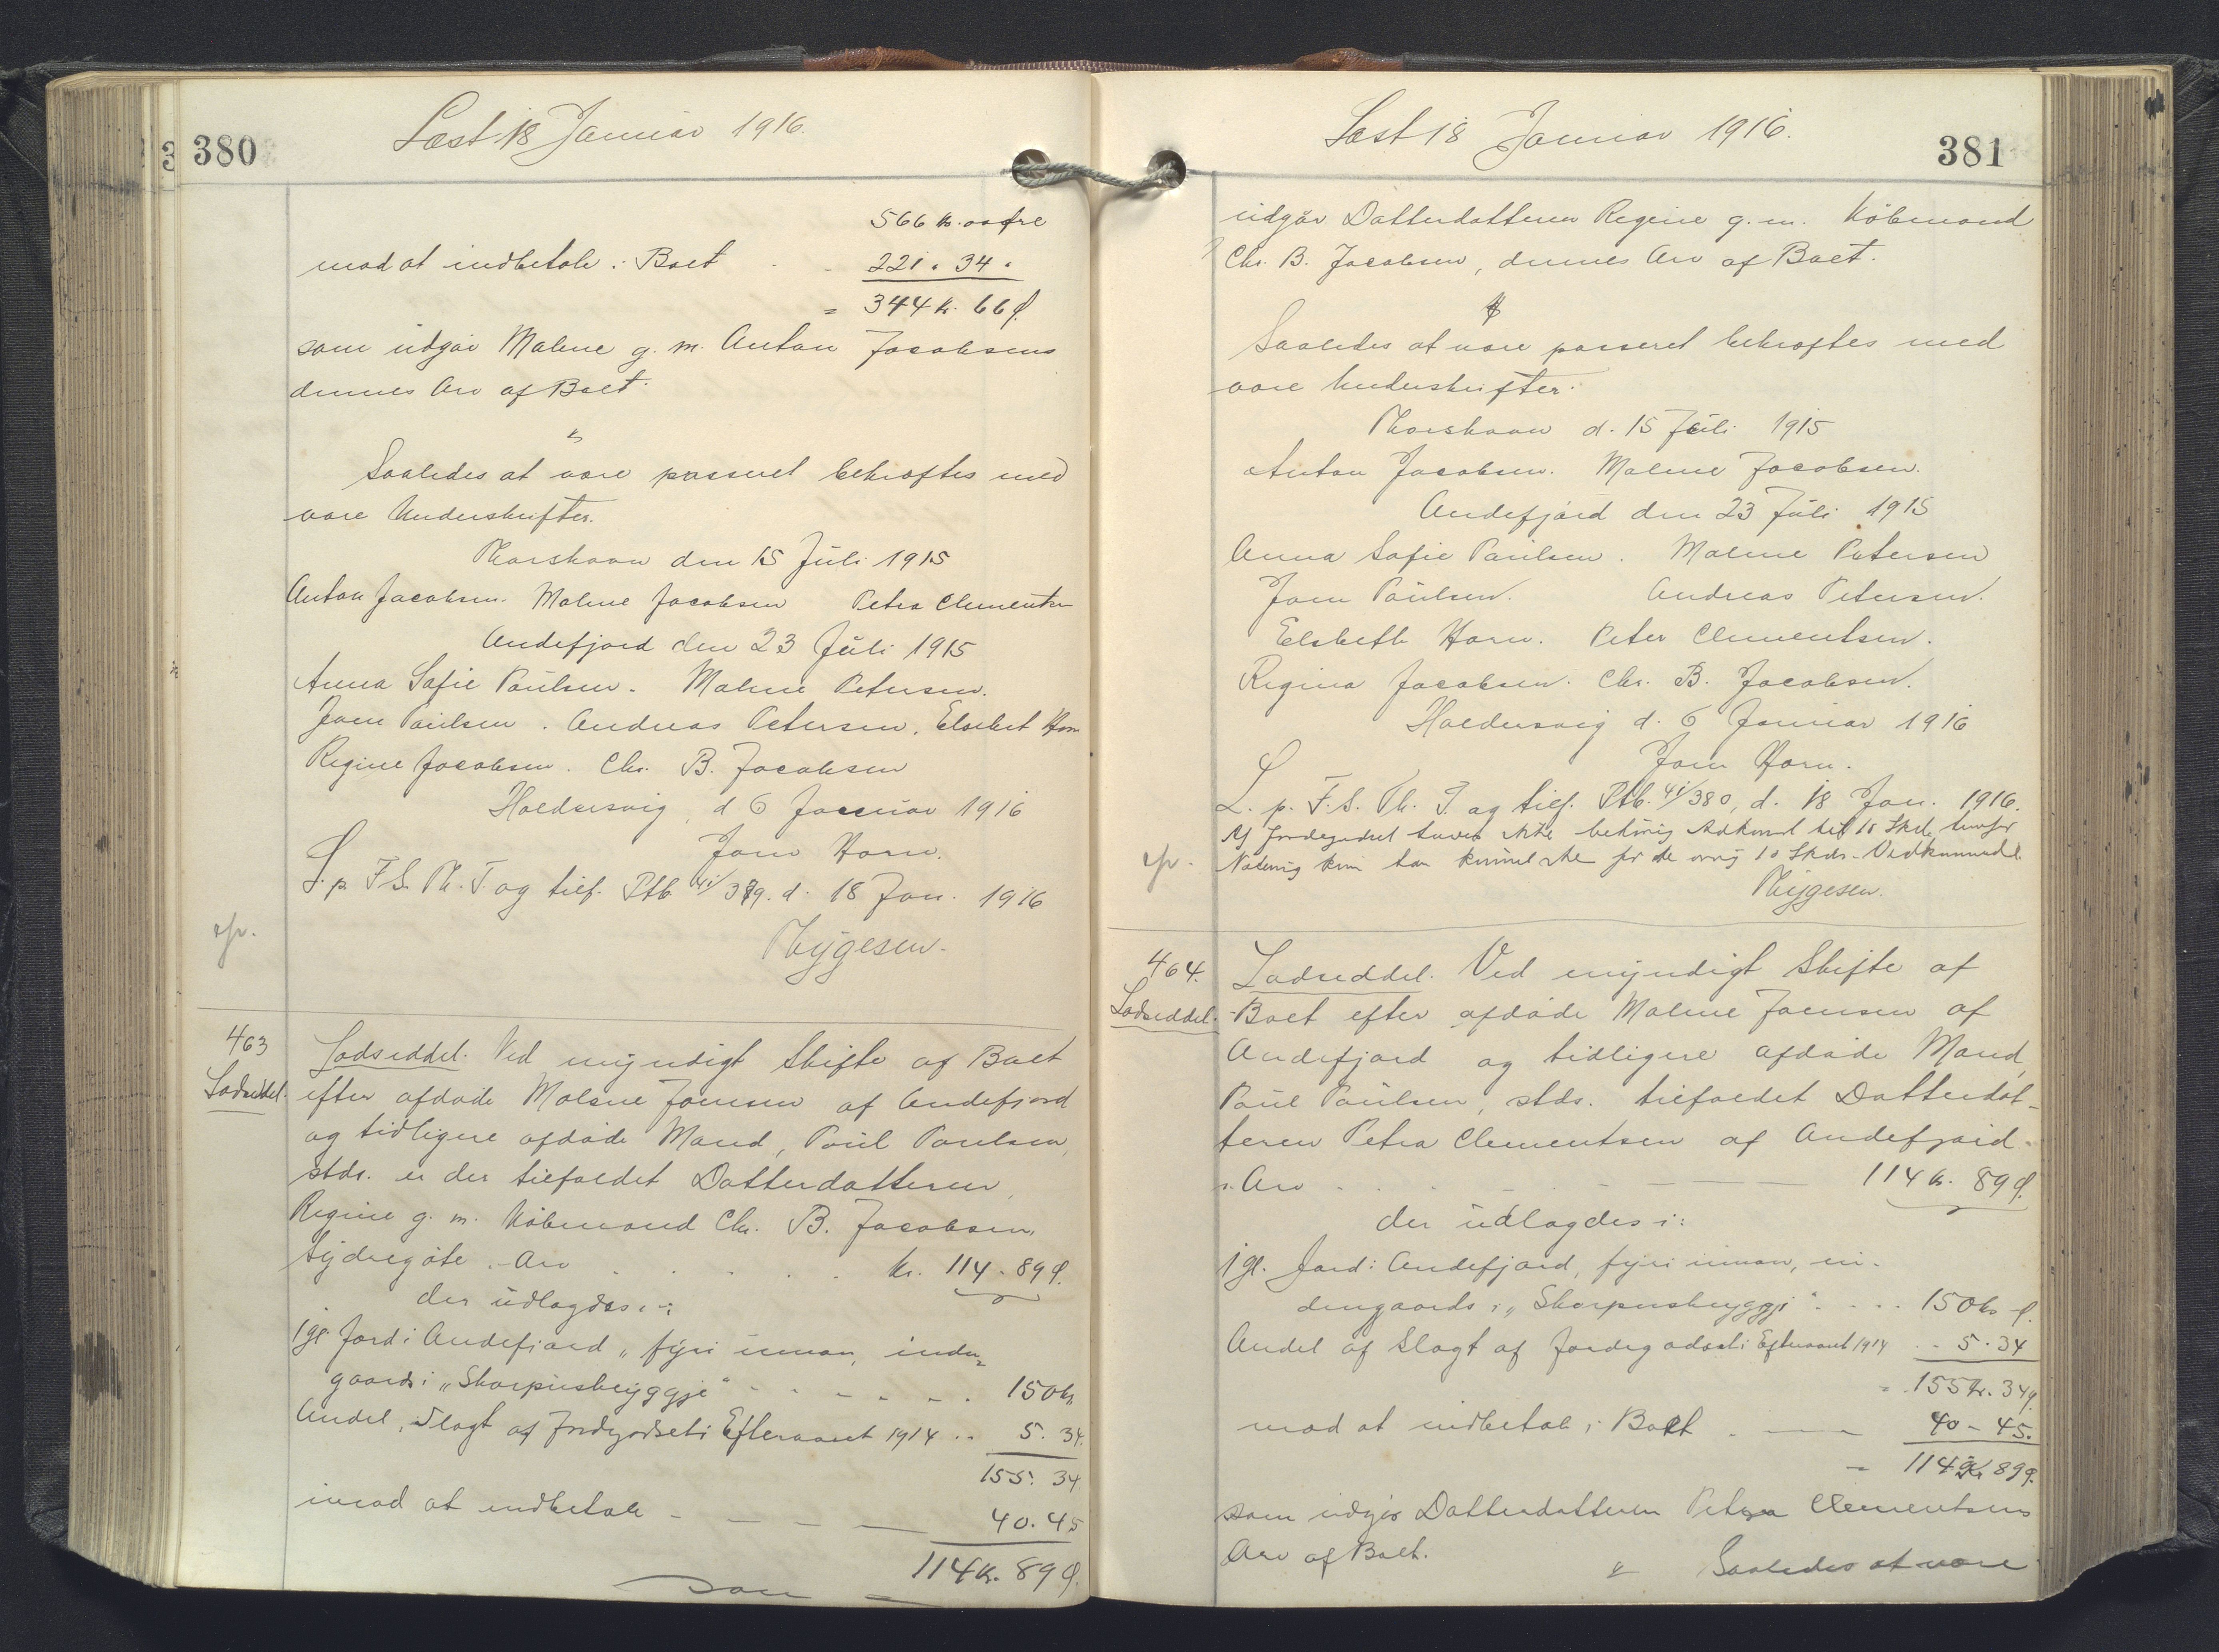 380
Læst 18 Januar 1916.
566 kr. 00 Øre
mod at indbetale i Boet . . 221 " 34 "
= 344 kr. 66 Ø.
som udgør Malene g. m. Anton Jacobsens
dennes Arv af Boet.
Saaledes at være passeret bekræftes med
vore Underskrifter.
Thorshavn den 15 Juli 1915
Anton Jacobsen. Malene Jacobsen Petra Clementsen
Andefjord den 23 Juli 1915
Anna Sofie Poulsen. Malene Petersen.
Joen Poulsen. Andreas Petersen. Elsebet Horn
Regine Jacobsen. Chr. B. Jacobsen
Haldersvig, d 6 Januar 1916
Joen Horn.
L. p. F. S. Th. T. og tilf. Ptb. 41/379. d. 18 Jan. 1916
Thygesen.
463
Lodseddel.
Lodseddel. Ved myndigt Skifte af Boet
efter afdøde Malene Joensen af Andefjord
og tidligere afdøde Mand, Poul Poulsen,
stds. er der tilfaldet Datterdatteren,
Regine g. m. Købmand Chr. B. Jacobsen,
Sydregøte. - Arv . . . . kr. 114. 89 Ø.
der udlagdes i:
1 gl. Jord i Andefjord „fyri innan, inden-
gaards i „Skarpusbryggje" - - - - 150 kr
Andel i Slagt af Jordegodset i Efteraaret 1914 . . 5. 34.
155. 34
imod at indbetale - - - - 40. 45
114 kr. 89 Ø.
som
381
Læst 18 Januar 1916.
udgør Datterdatteren Regine g. m. Købmand
Chr. B. Jacobsen, dennes Arv af Boet.
Saaledes at være passeret bekræftes med
vore Underskrifter.
Thorshavn d. 15 Juli 1915
Anton Jacobsen. Malene Jacobsen.
Andefjord den 23 Juli 1915
Anna Sofie Poulsen. Malene Petersen
Joen Poulsen. Andreas Petersen.
Elsbeth Horn. Peter Clementsen.
Regina Jacobsen. Chr. B. Jacobsen.
Haldersvig d. 6 Januar 1916
Joen Horn.
L. p. F. S. Th. T. og tilf. Ptb. 41/380, d. 18 Jan. 1916.
Af Jordegodset haves ikke behørig Adkomst til 10 Skd.,
Notering kun har kunnet ske for de øvrig 10 Skds. Vedkommende.
Thygesen.
464.
Lodseddel.
Lodseddel. Ved myndigt Skifte af
Boet efter afdøde Malene Joensen af
Andefjord og tidligere afdøde Mand,
Poul Poulsen, stds. tilfaldet Datterdat-
teren Petra Clementsen af Andefjord -
i Arv - - - - 114 kr. 89 Ø.
der udlagdes i:
1 gl. Jord i Andefjord, fyri innan, in-
dengaards i „Skarpusbryggji" . . . . 150 kr Ø.
Andel af Slagt af Jordegodset i Efteraaret 1914 . . 5. 34
= 155 kr. 34 Ø.
mod at indbetale i Boet . - - 40 - 45.
= 114 Kr 89 Ø.
som udgør Datterdatteren Petra Clementsens
Arv af Boet.
Saaledes at være